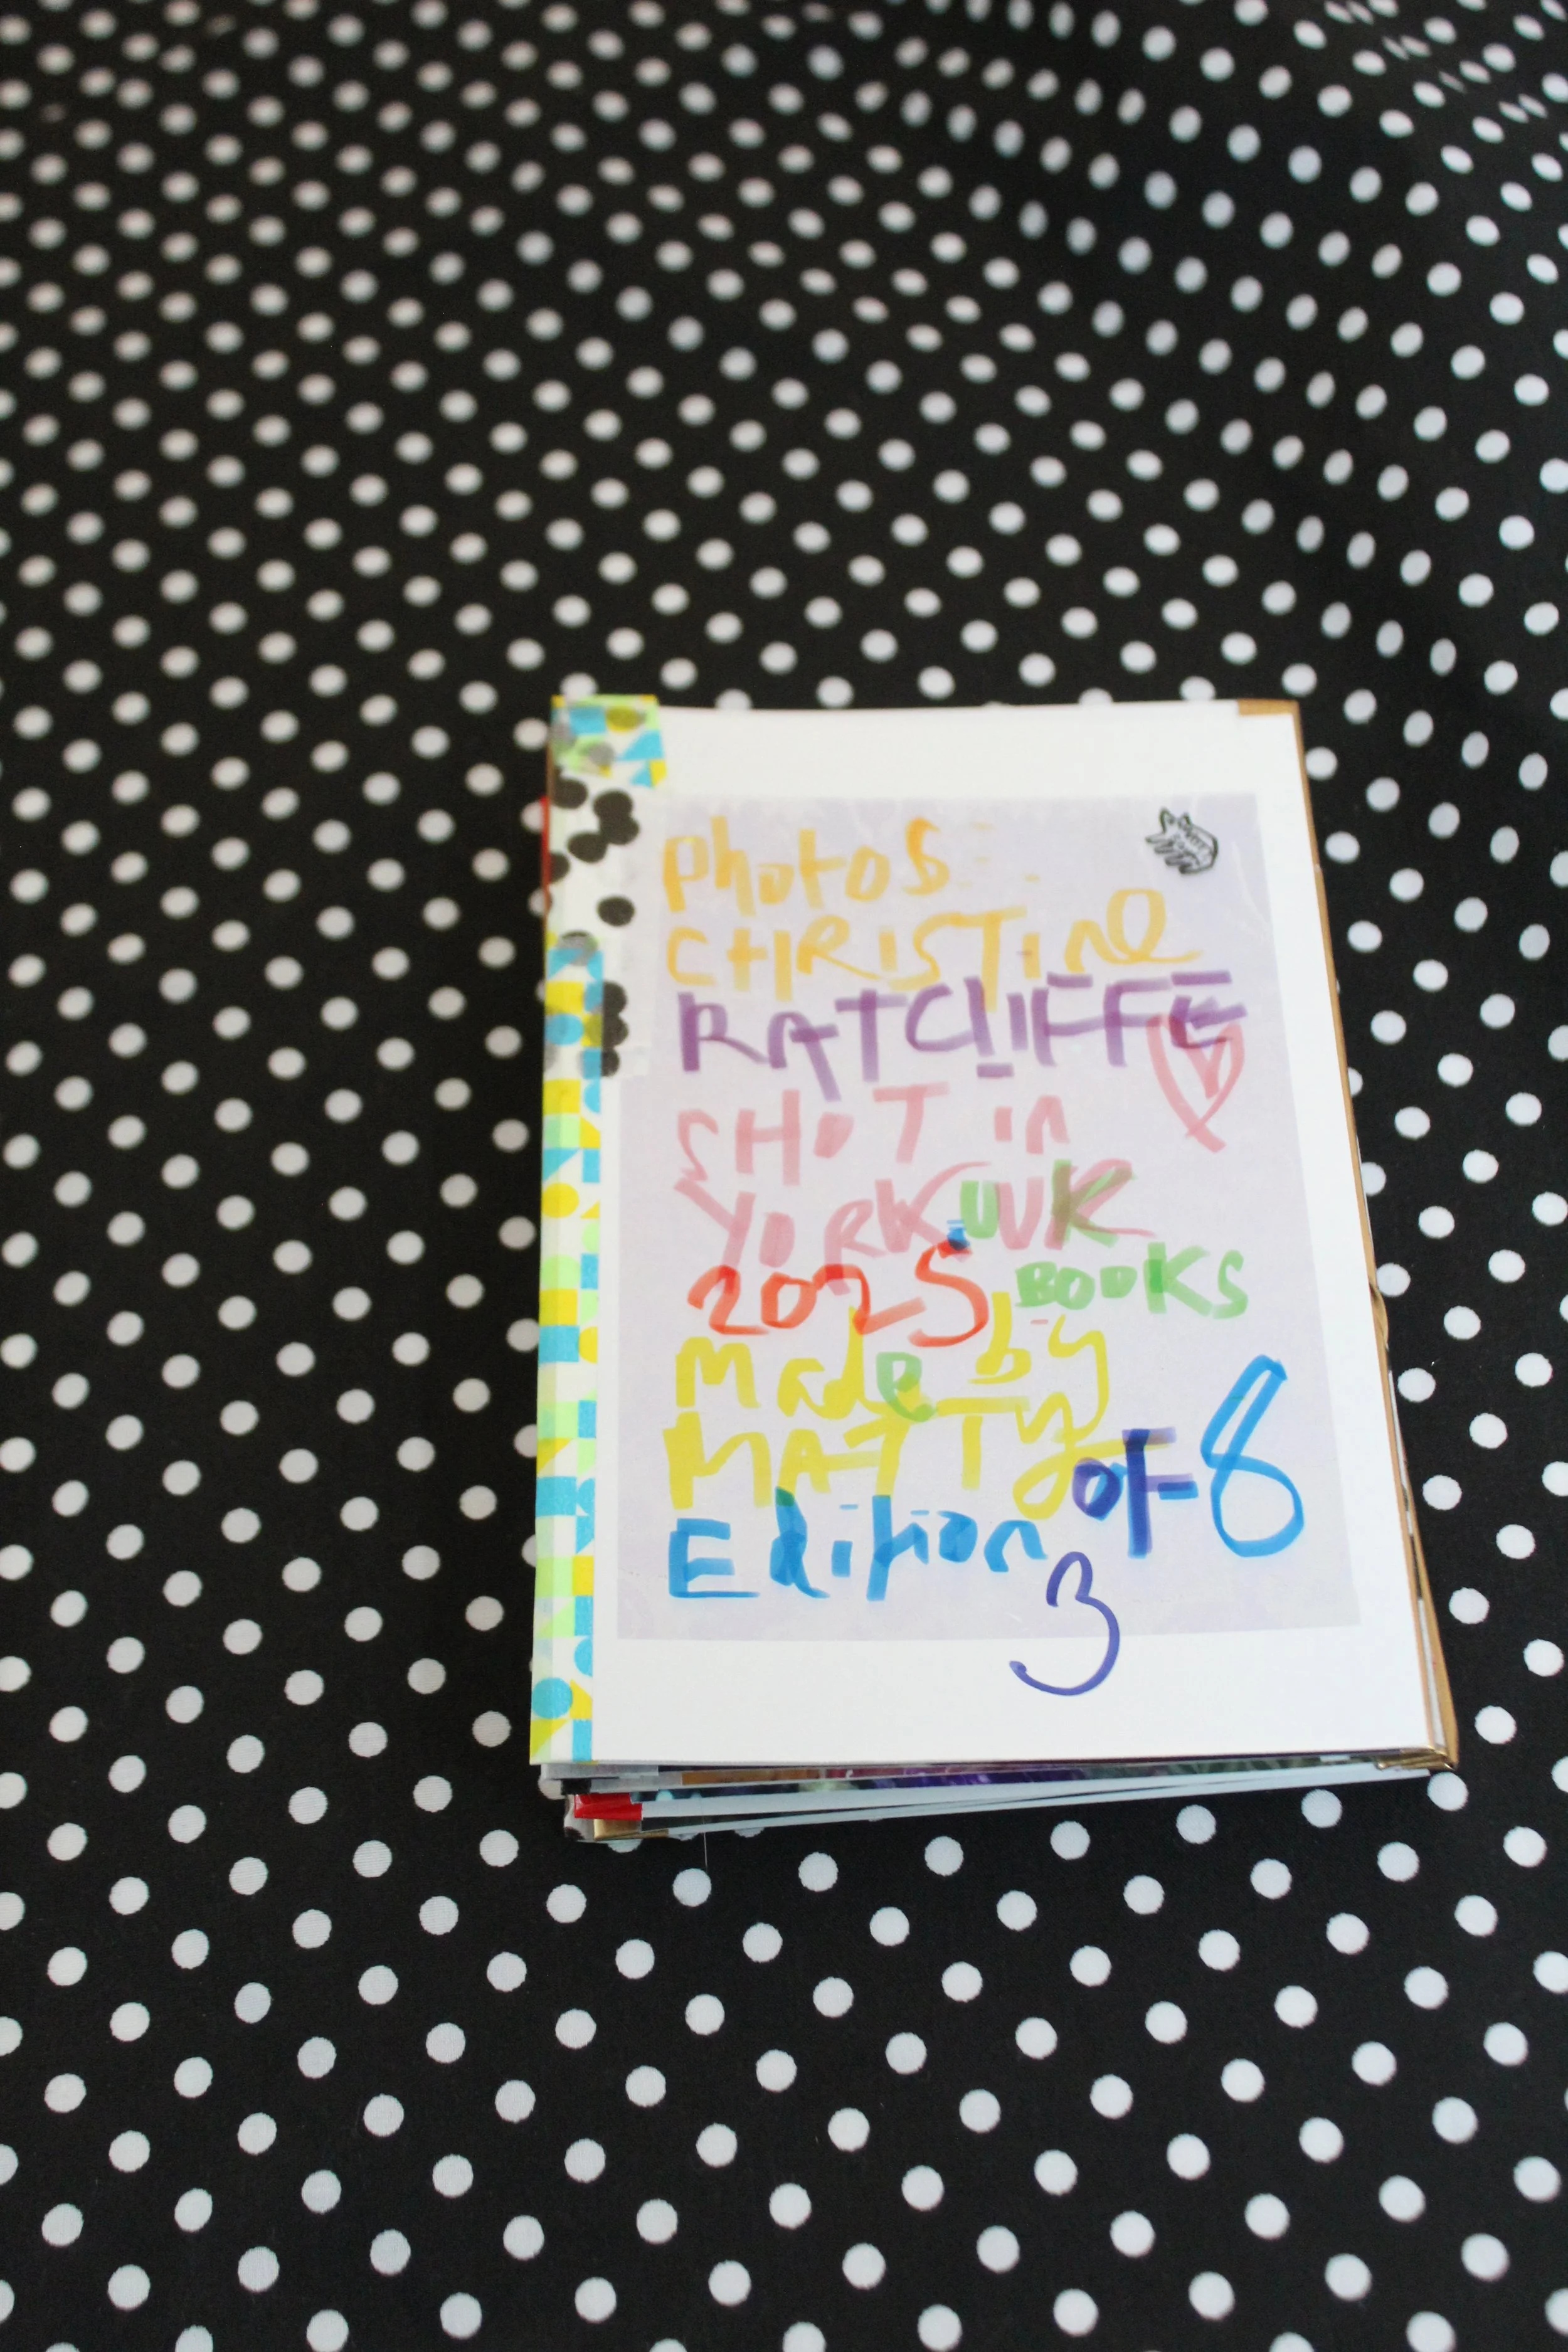 Photos
CHRISTINE
RATCLIFFE
SHOT in
YORK UK UK
2025 BOOKS
Made by
MATTY
Edition of 8
3